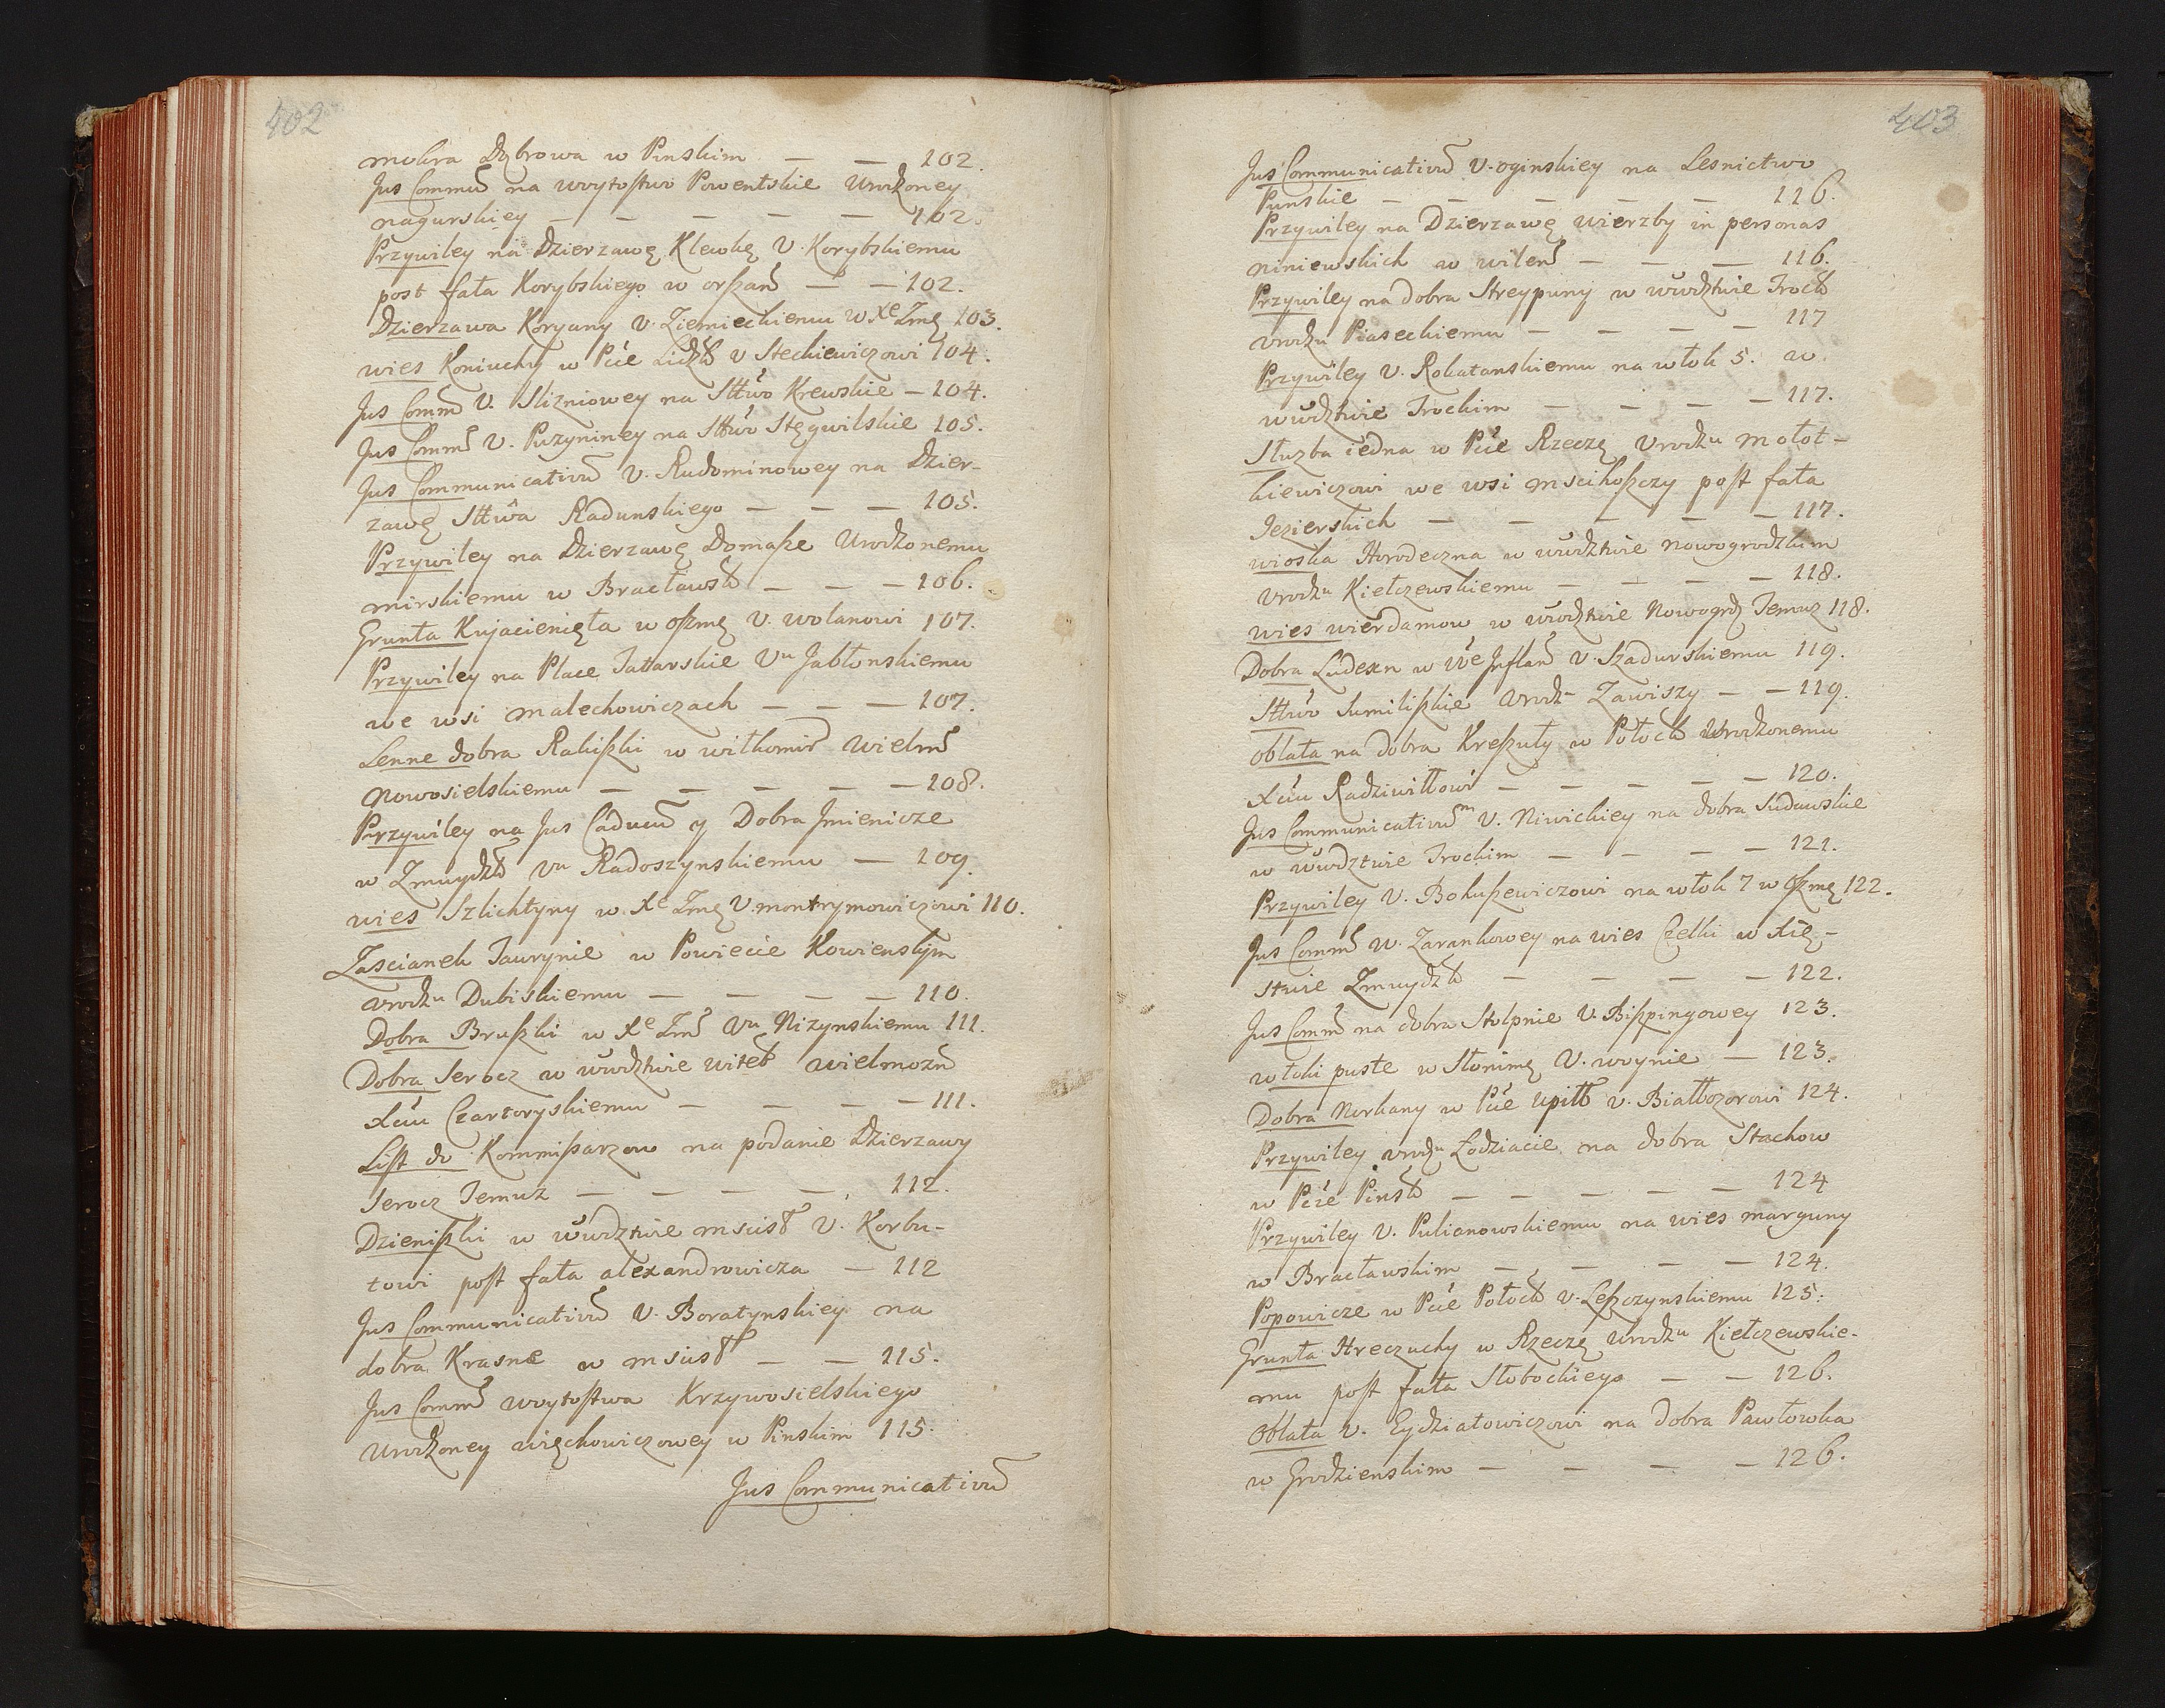 402
mokra Dąbrowa w Pinskim — — 102.
Jus Commu͠ na woytostwo Powentskie Urodzoney
nagurskiey — — — — — 102.
Przywiley na Dzierzawę Klewkę V. Korybskiemu
post fata Korybskiego w orszan͠ — — 102.
Dzierzawa Koryany V. Ziemieckiemu w Xe Zmę 103.
wies Koniuchy w Pcie Lidzk͠ V Steckiewiczowi 104.
Jus Comm͠ V. Slizniowey na Sttwo Krewskie — 104.
Jus Comm͠ V. Puzyniney na Sttwo Stęgwilskie 105.
Jus Communicativu͠ V. Rudominowey na Dzier-
zawę Sttwa Radunskiego — — — 105.
Przywiley na Dzierzawę Domasze Urodzonemu
mirskiemu w Bracławsk͠ — — — 106.
Grunta Kujacienięta w oszmę V. wolanowi 107.
Przywiley na Place Tatarskie Vu Jabłonskiemu
we wsi malechowiczach — — — 107.
Lenne dobra Rakiszki w wiłkomir͠ Wielm͠
Nowosielskiemu — — — — — 108.
Przywiley na Jus Caducu͠ y Dobra Jmienicze
w Zmuydzk͠ Vu Radoszynskiemu — 109.
wies Szlichtyny w Xe Zmę V. montrymowiczowi 110.
Zascianek Tawrynie w Powiecie Kowienskym
Vrodzu Dubiskiemu — — — — 110.
Dobra Bruszki w Xe Zm͠ Vu Nizynskiemu 111.
Dobra Serocz w wwdztwie witeb͠ wielmozn͠
Xciu Czartoryskiemu — — — — 111.
List do Kommissarzow na podanie Dzierzawy
Serocz Temuz — — — — 112.
Dzieniszki w wwdztwie mscisł͠ V. Korbu-
towi post fata alexandrowicza — 112
Jus Communicativu͠ V. Boratynskiey na
dobra Krasne w mscisł͠ — — 115.
Jus Comm͠ woytostwa Krzywosielskiego
Urodzoney więchowiczowey w Pinskim 115.
Jus Communicativu͠
403
Jus Communicativu͠ V. oginskiey na Lesnictwo
Punskie — — — — — 116.
Przywiley na Dzierzawę wierzby in personas
niniewskich w wilen͠ — — — 116.
Przywiley na dobra Streypuny w wwdztwie Trock͠
Vrodzu Piaseckiemu — — — — 117
Przywiley V. Rokatanskiemu na włok 5. w
wwdztwie Trockim — — — — 117.
Służba iedna w Pcie Rzeczę Vrodzu mołot-
kiewiczowi we wsi mscihoszczy post fata
Jezierskich — — — — — 117.
wioska Horodeczna w wwdztwie nowogrodzkim
Vrodzu Kiełczewskiemu — — — — 118.
wies wierdamow w wwdztwie Nowogrdz Temuz 118.
Dobra Ludexn w We Jnflan͠ V. Szadurskiemu 119.
Sttwo Sumiliszkie Vrodz Zawiszy — — 119.
Oblata na dobra Kreszuty w Połock͠ Urodzonemu
Xciu Radziwiłłowi — — — — — 120.
Jus Communicativu͠m V. Niwickiey na dobra Sudawskie
w wwdztwie Trockim — — — — 121.
Przywiley V. Bokuszewiczowi na włok 7 w Oszmę 122.
Jus Comm͠ W. Zarankowey na wies Czelki w Xię-
stwie Zmuydzk͠ — — — — 122.
Jus Comm͠ na dobra Stolpnie V. Biszpingowey 123.
włoki puste w Słonimę V. woynie — 123.
Dobra Norkany w Pcie Upitt͠ V. Białłozorowi 124.
Przywiley Vrodzu Łodziacie na dobra Stachow
w Pcie Pinsk͠ — — — — — 124
Przywiley V. Pulianowskiemu na wies marguny
w Bracławskim — — — — 124.
Popowicze w Pcie Połock͠ V. Leszczynskiemu 125.
Grunta Hreczuchy w Rzeczę Urodzu Kiełczewskie-
mu post fata Słobockiego — — 126.
Oblata V. Eydziatowiczowi na dobra Pawłowka
w Grodzienskim — — — — 126.